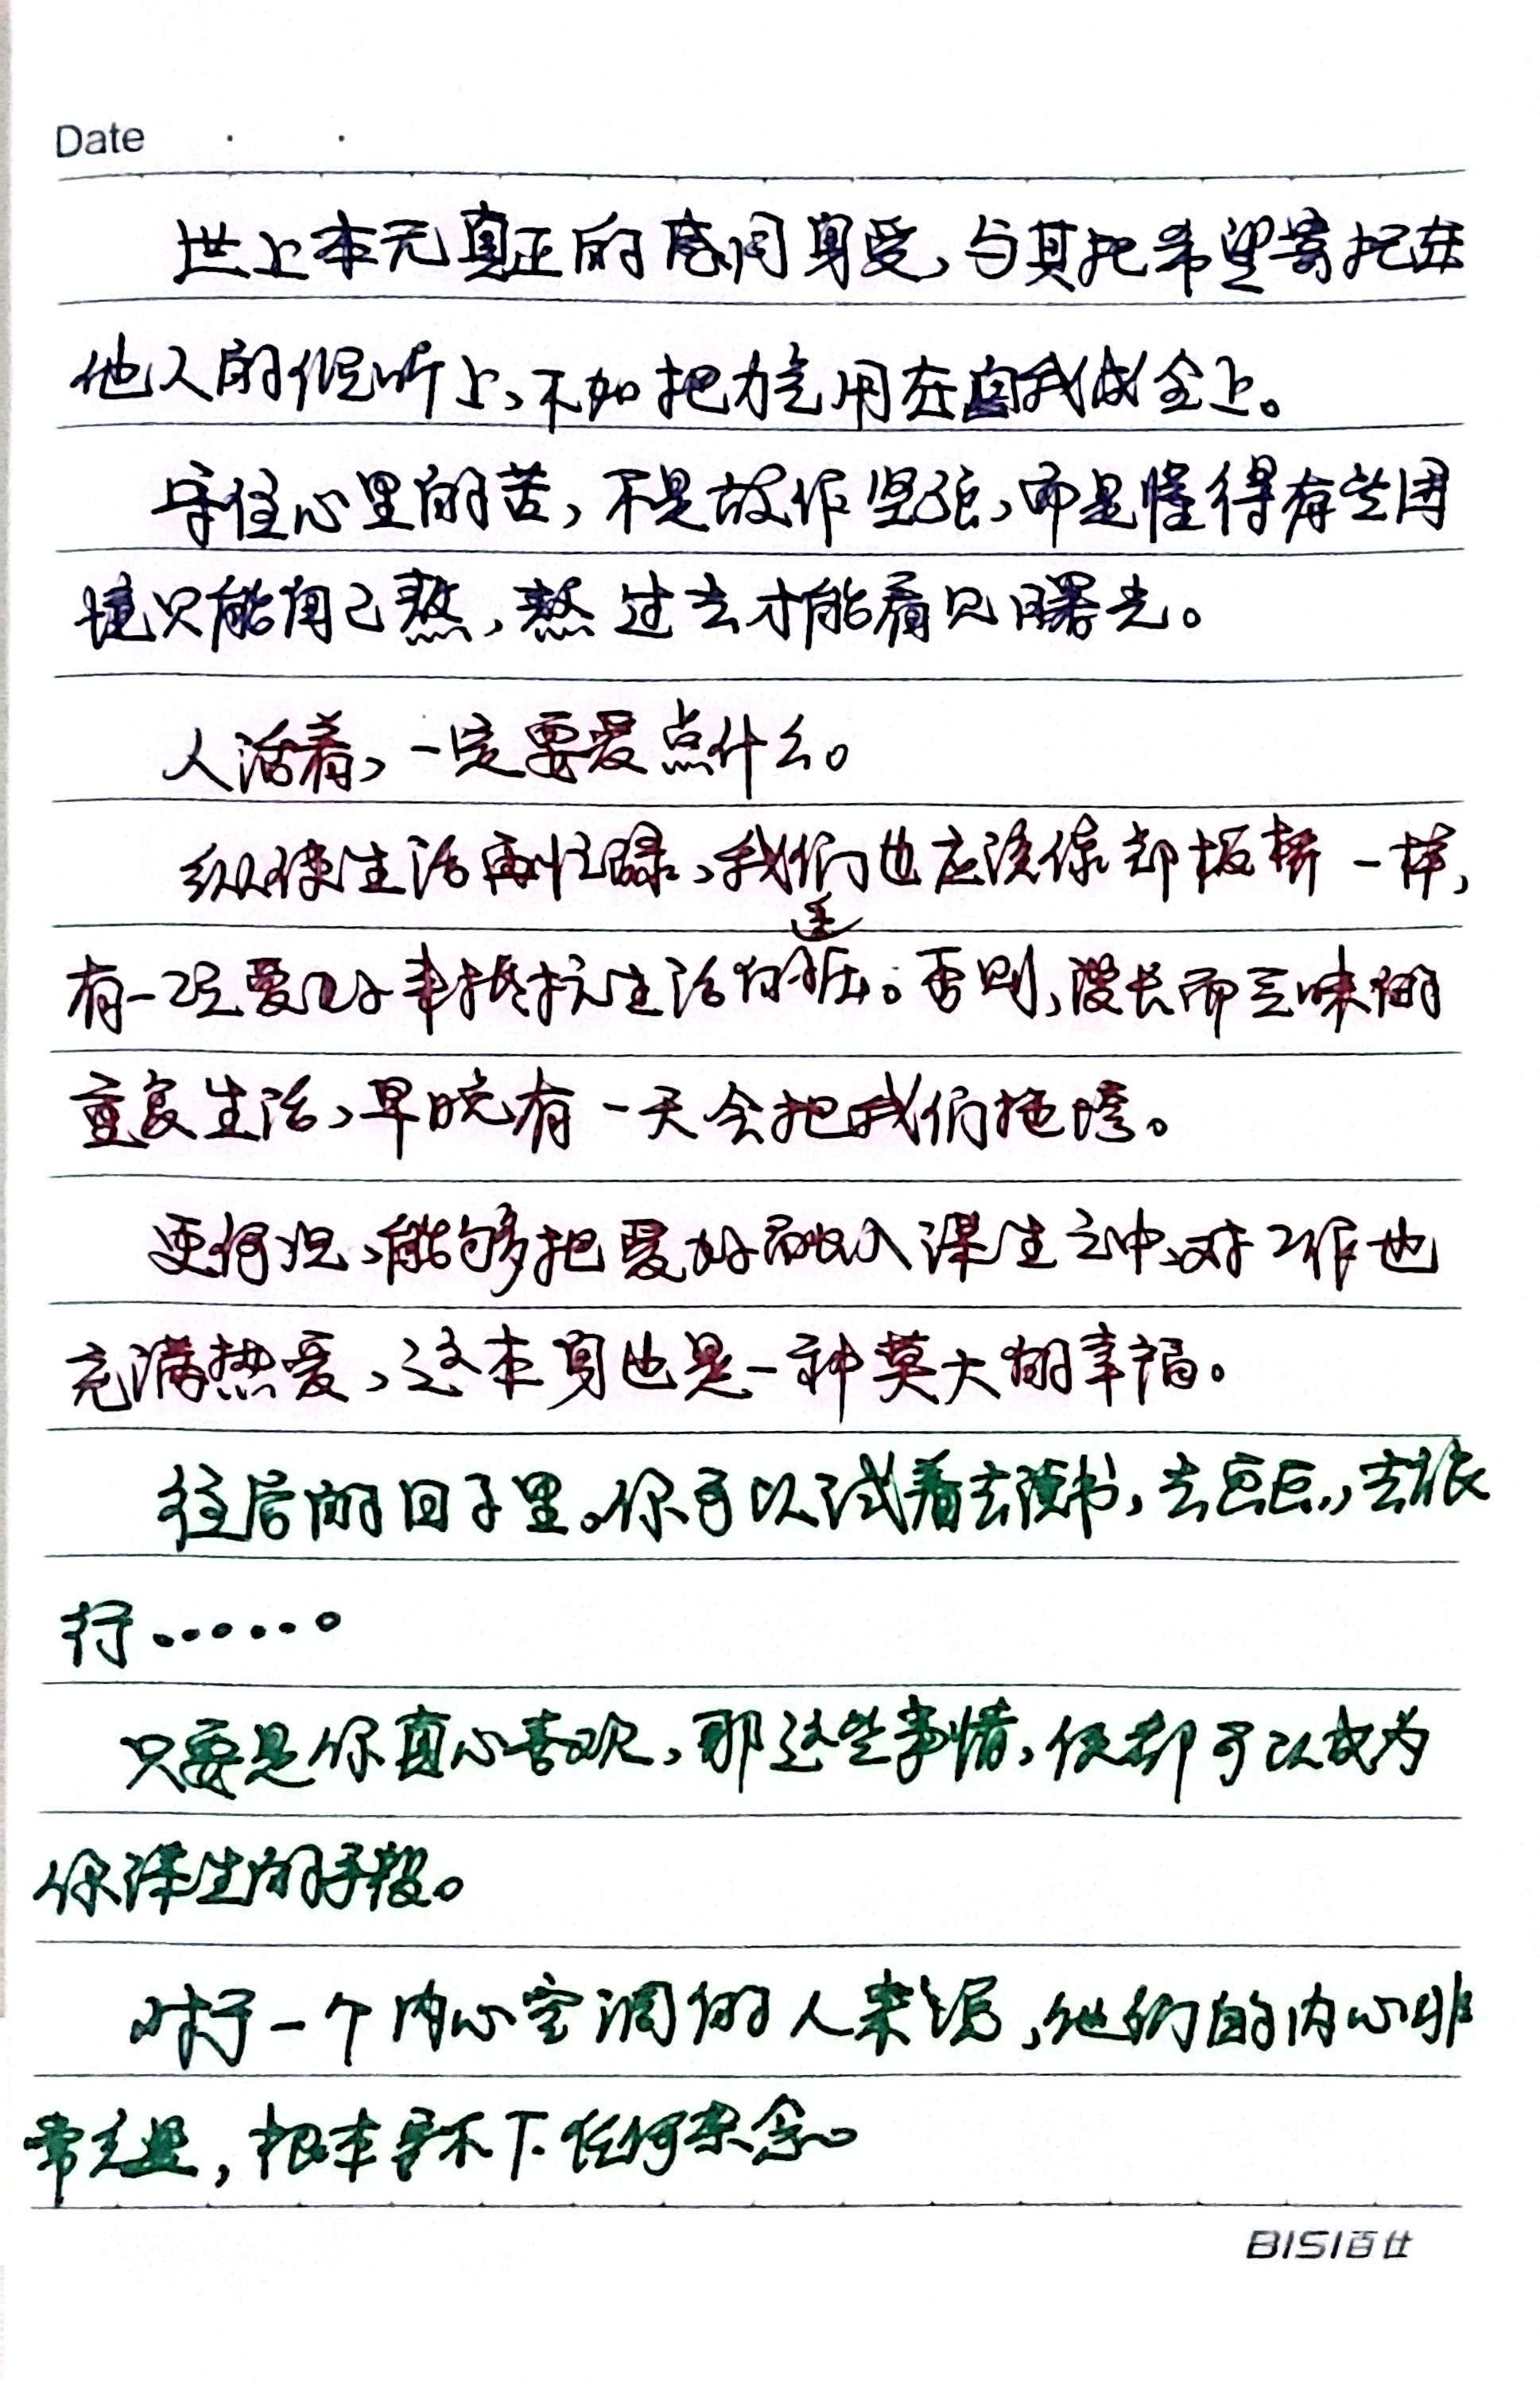 Date
世上本无真正的感同身受,与其把希望寄托在
他人的倾听上,不如把力气用在自我成全上。
守住心里的苦,不是故作坚强,而是懂得有些困
境只能自己熬,熬过去才能看见曙光。
人活着,一定要爱点什么。
纵使生活再忙碌,我们也应该像郑板桥一样,
有一定爱好来抵抗生活的压。否则,漫长而乏味的
重复生活,早晚有一天会把我们拖垮。
更何况,能够把爱好融入谋生之中,对工作也
充满热爱,这本身也是一种莫大的幸福。
往后的日子里,你可以试着去读书,去画画,去旅
行……。
只要是你真心喜欢,那这些事情,便都可以成为
你谋生的手段。
对于一个内心空洞的人来说,他们的内心非
常,根本容不下任何杂念。
BISI百仕